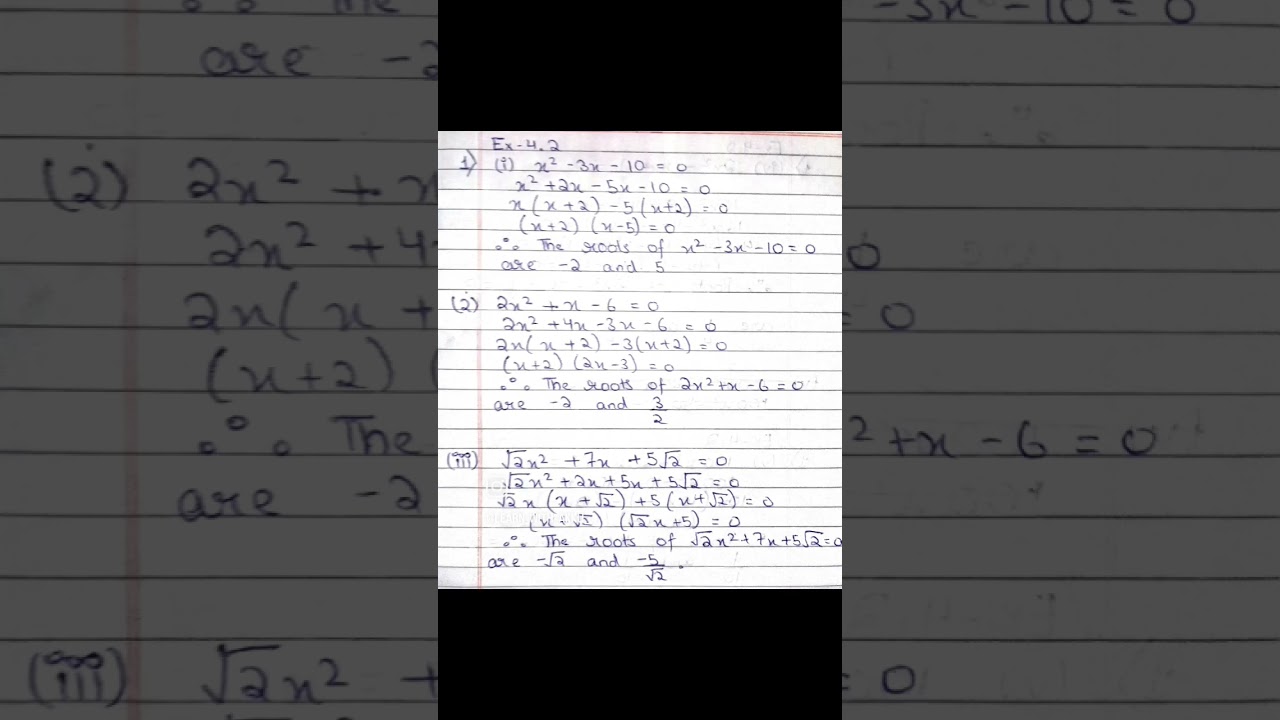 Ex-4.2
1) (i) x² - 3x - 10 = 0
x² + 2x - 5x - 10 = 0
x(x+2) - 5(x+2) = 0
(x+2) (x-5) = 0
∴ The roots of x² - 3x - 10 = 0
are -2 and 5
(2) 2x² + x - 6 = 0
2x² + 4x - 3x - 6 = 0
2x(x+2) - 3(x+2) = 0
(x+2) (2x-3) = 0
∴ The roots of 2x² + x - 6 = 0
are -2 and 3/2
(iii) √2x² + 7x + 5√2 = 0
√2x² + 2x + 5x + 5√2 = 0
√2x (x+√2) + 5(x+√2) = 0
(x+√2) (√2x+5) = 0
∴ The roots of √2x² + 7x + 5√2 = 0
are -√2 and -5/√2.